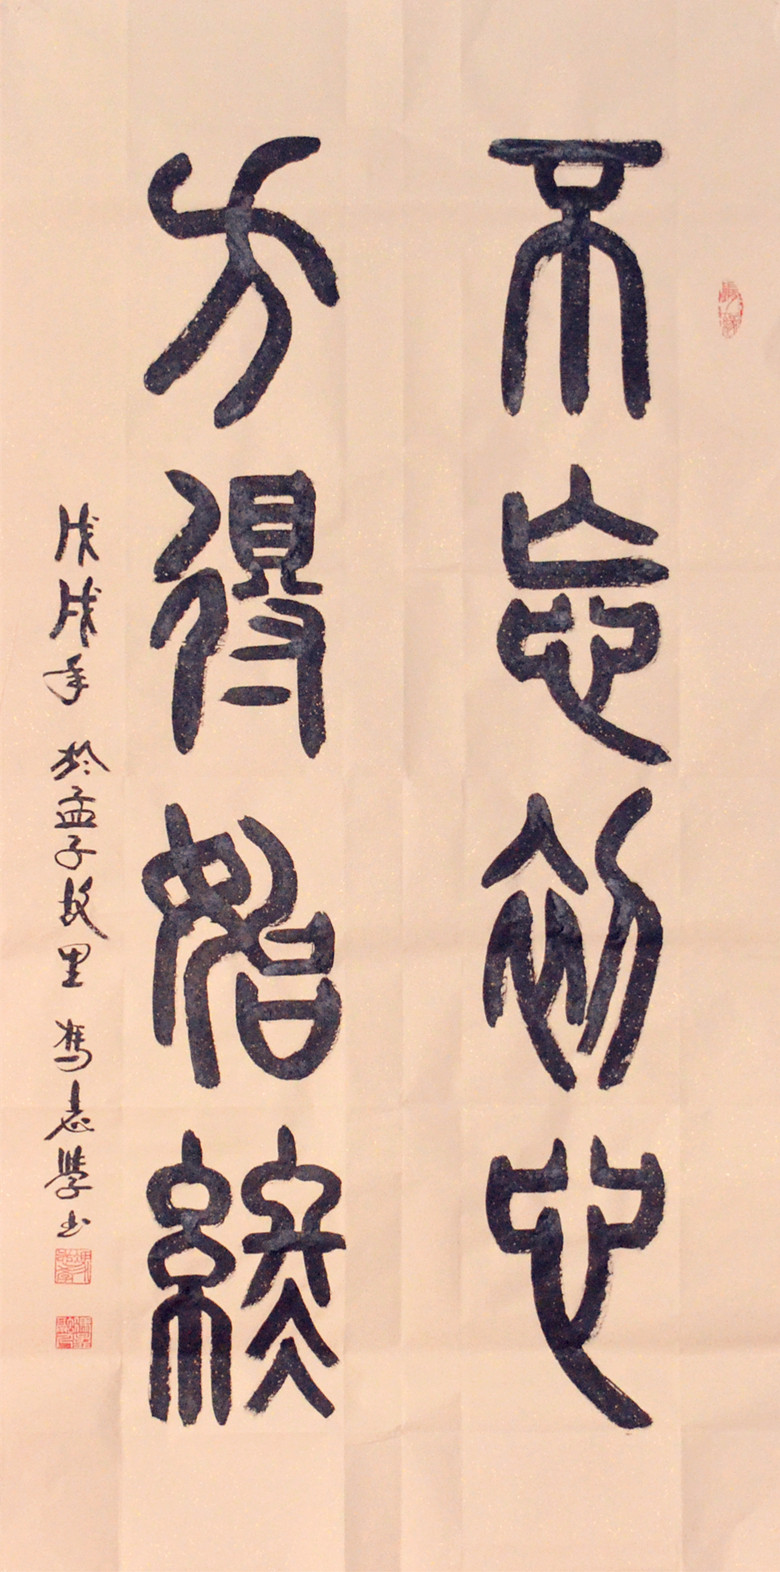 不忘初心
方得始終
戊戌年於孟子故里馮志學书